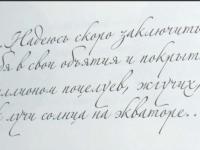 ..Надеюсь скоро заключить
бя в свои объятия и покрыть
ллионом поцелуев, жгучих,
к лучи солнца на экваторе..